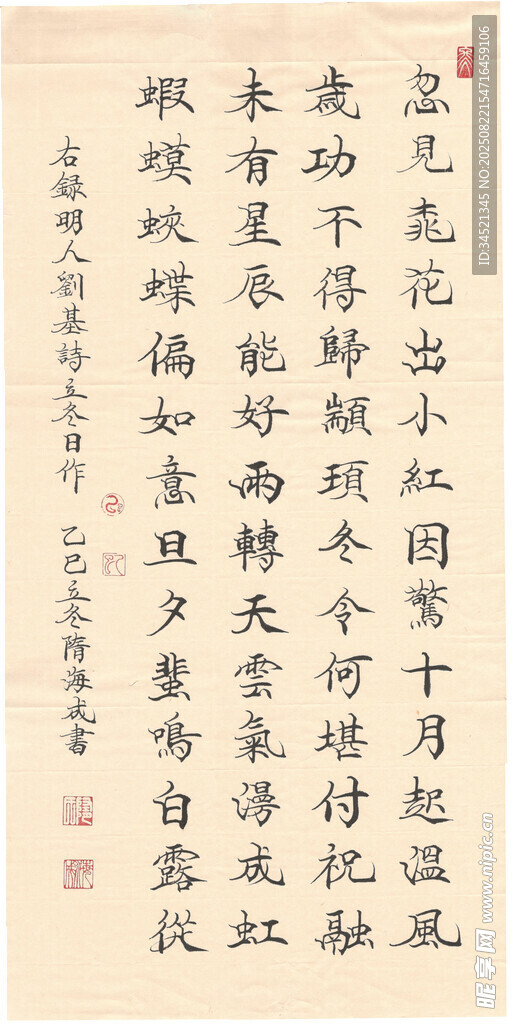 忽見桃花出小紅因驚十月起溫風
歲功不得歸顓頊冬令何堪付祝融
未有星辰能好雨轉天雲氣漫成虹
蝦蟆蛺蝶偏如意旦夕蜚鳴白露從
右録明人劉基詩立冬日作 乙巳立冬隋海成書
ID:34521345 NO:20250822154716459106
昵享网 www.nipic.cn